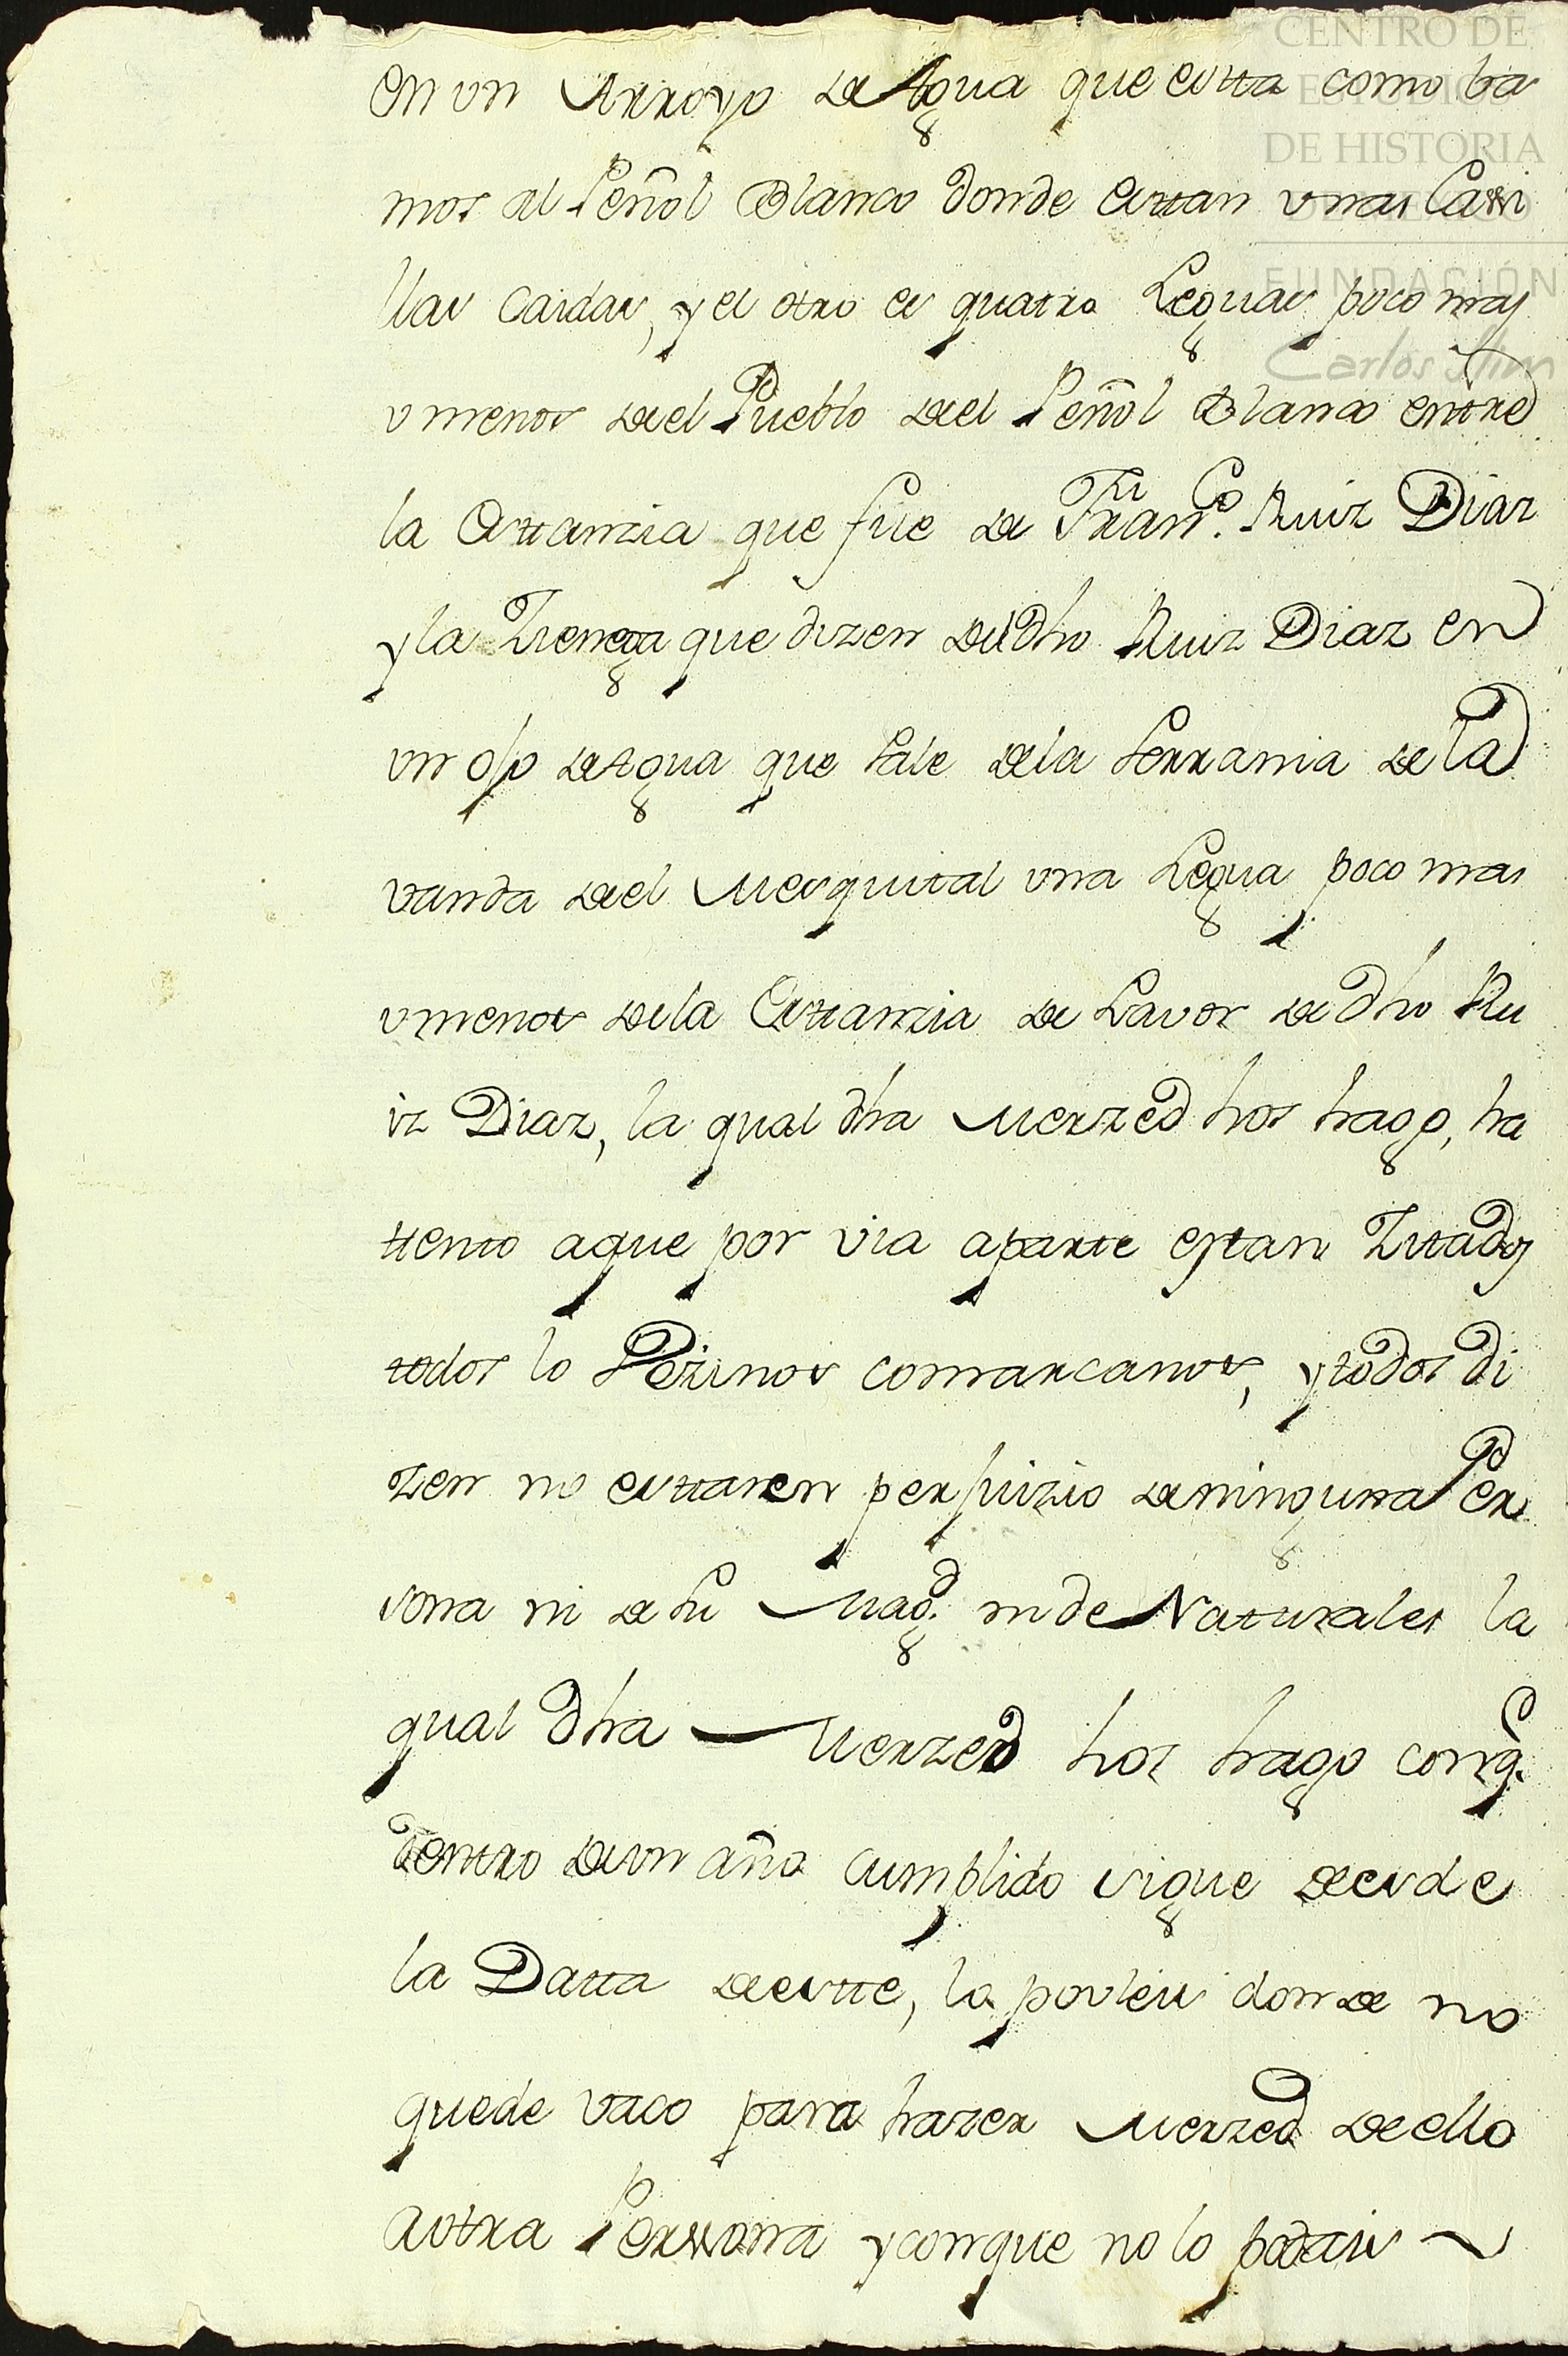 CENTRO DE
ESTUDIOS
DE HISTORIA
DE MEXICO
FUNDACIÓN
Carlos Slim
en vn Arroyo de Agua que estta como ba
mos al Peñol Blanco donde esttan vnas Cassi
llas caidas, y el otro es quatro Leguas poco mas
v menos de el Pueblo de el Peñol Blanco entre
la Esttanzia que fue de Fran.co Ruiz Diaz
y la Zienega que dizen del dho Ruiz Diaz en
vn ojo de Agua que sale de la serrania de la
vanda de el Mesquital vna Legua poco mas
v menos de la Esttanzia de Lavor de dho Ru
iz Diaz, la qual dha Merzed hos hago, ha
tiento aque por via aparte estan Zitados
todos lo Vezinos comarcanos, y todos di
zen no esttaren perjuizio de ninguna Per
sona ni de su Mag.d ni de Naturales la
qual dha Merzed hos hago con q.e
dentro de vn año cumplido sigue desde
la Datta de estte, la pobleis donde no
quede vaco para hazer Merzed de ello
aotra Perssona y con que no lo podais